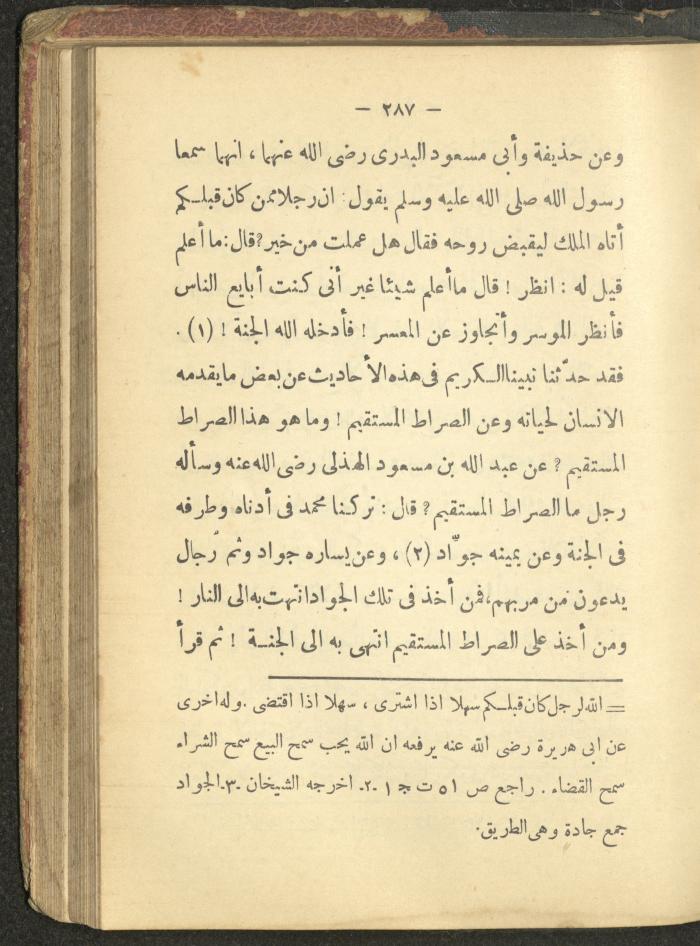 — ٢٨٧ —
وعن حذيفة وأبى مسعود البدرى رضى الله عنهما ، انهما سمعا
رسول الله صلى الله عليه وسلم يقول : ان رجلا ممن كان قبلكم
أتاه الملك ليقبض روحه فقال هل عملت من خير ? قال : ما أعلم
قيل له : انظر ! قال ما أعلم شيئا غير أنى كنت أبايع الناس
فأنظر الموسر وأتجاوز عن المعسر ! فأدخله الله الجنة ! (١) .
فقد حدّثنا نبينا الكريم فى هذه الأحاديث عن بعض ما يقدمه
الانسان لحياته وعن الصراط المستقيم ! وما هو هذا الصراط
المستقيم ? عن عبد الله بن مسعود الهذلى رضى الله عنه وسأله
رجل ما الصراط المستقيم ? قال : تركنا محمد فى أدناه وطرفه
فى الجنة وعن يمينه جوّاد (٢) ، وعن يساره جواد وثم رُجال
يدعون مَن مر بهم، فمن أخذ فى تلك الجواد انتهت به الى النار !
ومن أخذ على الصراط المستقيم انتهى به الى الجنة ! ثم قرأ
= الله لرجل كان قبلكم سهلا اذا اشترى ، سهلا اذا اقتضى . وله اخرى
عن ابى هريرة رضى الله عنه يرفعه ان الله يحب سمح البيع سمح الشراء
سمح القضاء . راجع ص ٥١ ت ج ١ -٢- اخرجه الشيخان -٣- الجواد
جمع جادة وهى الطريق.